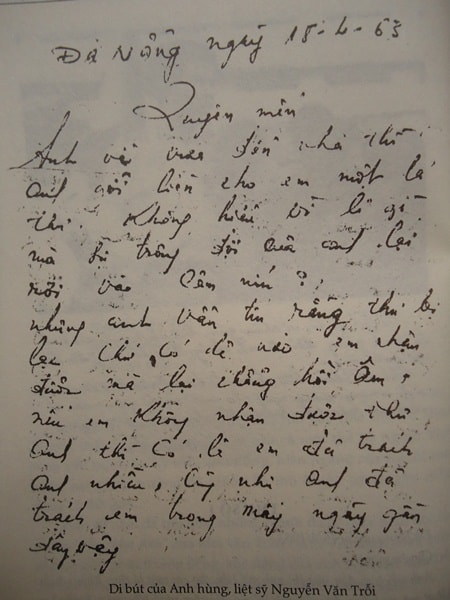 Đà Nẵng ngày 18-4-63
Quyên mến
Anh về vừa đến nhà thì
anh gởi liền cho em một lá
thư. Không hiểu vì lí gì
mà sự trông đợi của anh lại
rơi vào câm nín?
nhưng anh vẫn tin rằng thư bị
lạc chứ có lẽ nào em nhận
được mà lại không hồi âm,
nếu em không nhận được thư
anh thì có lẽ em đã trách
anh nhiều, cũng như anh đã
trách em trong mấy ngày gần
đây vậy
Di bút của Anh hùng, liệt sỹ Nguyễn Văn Trỗi